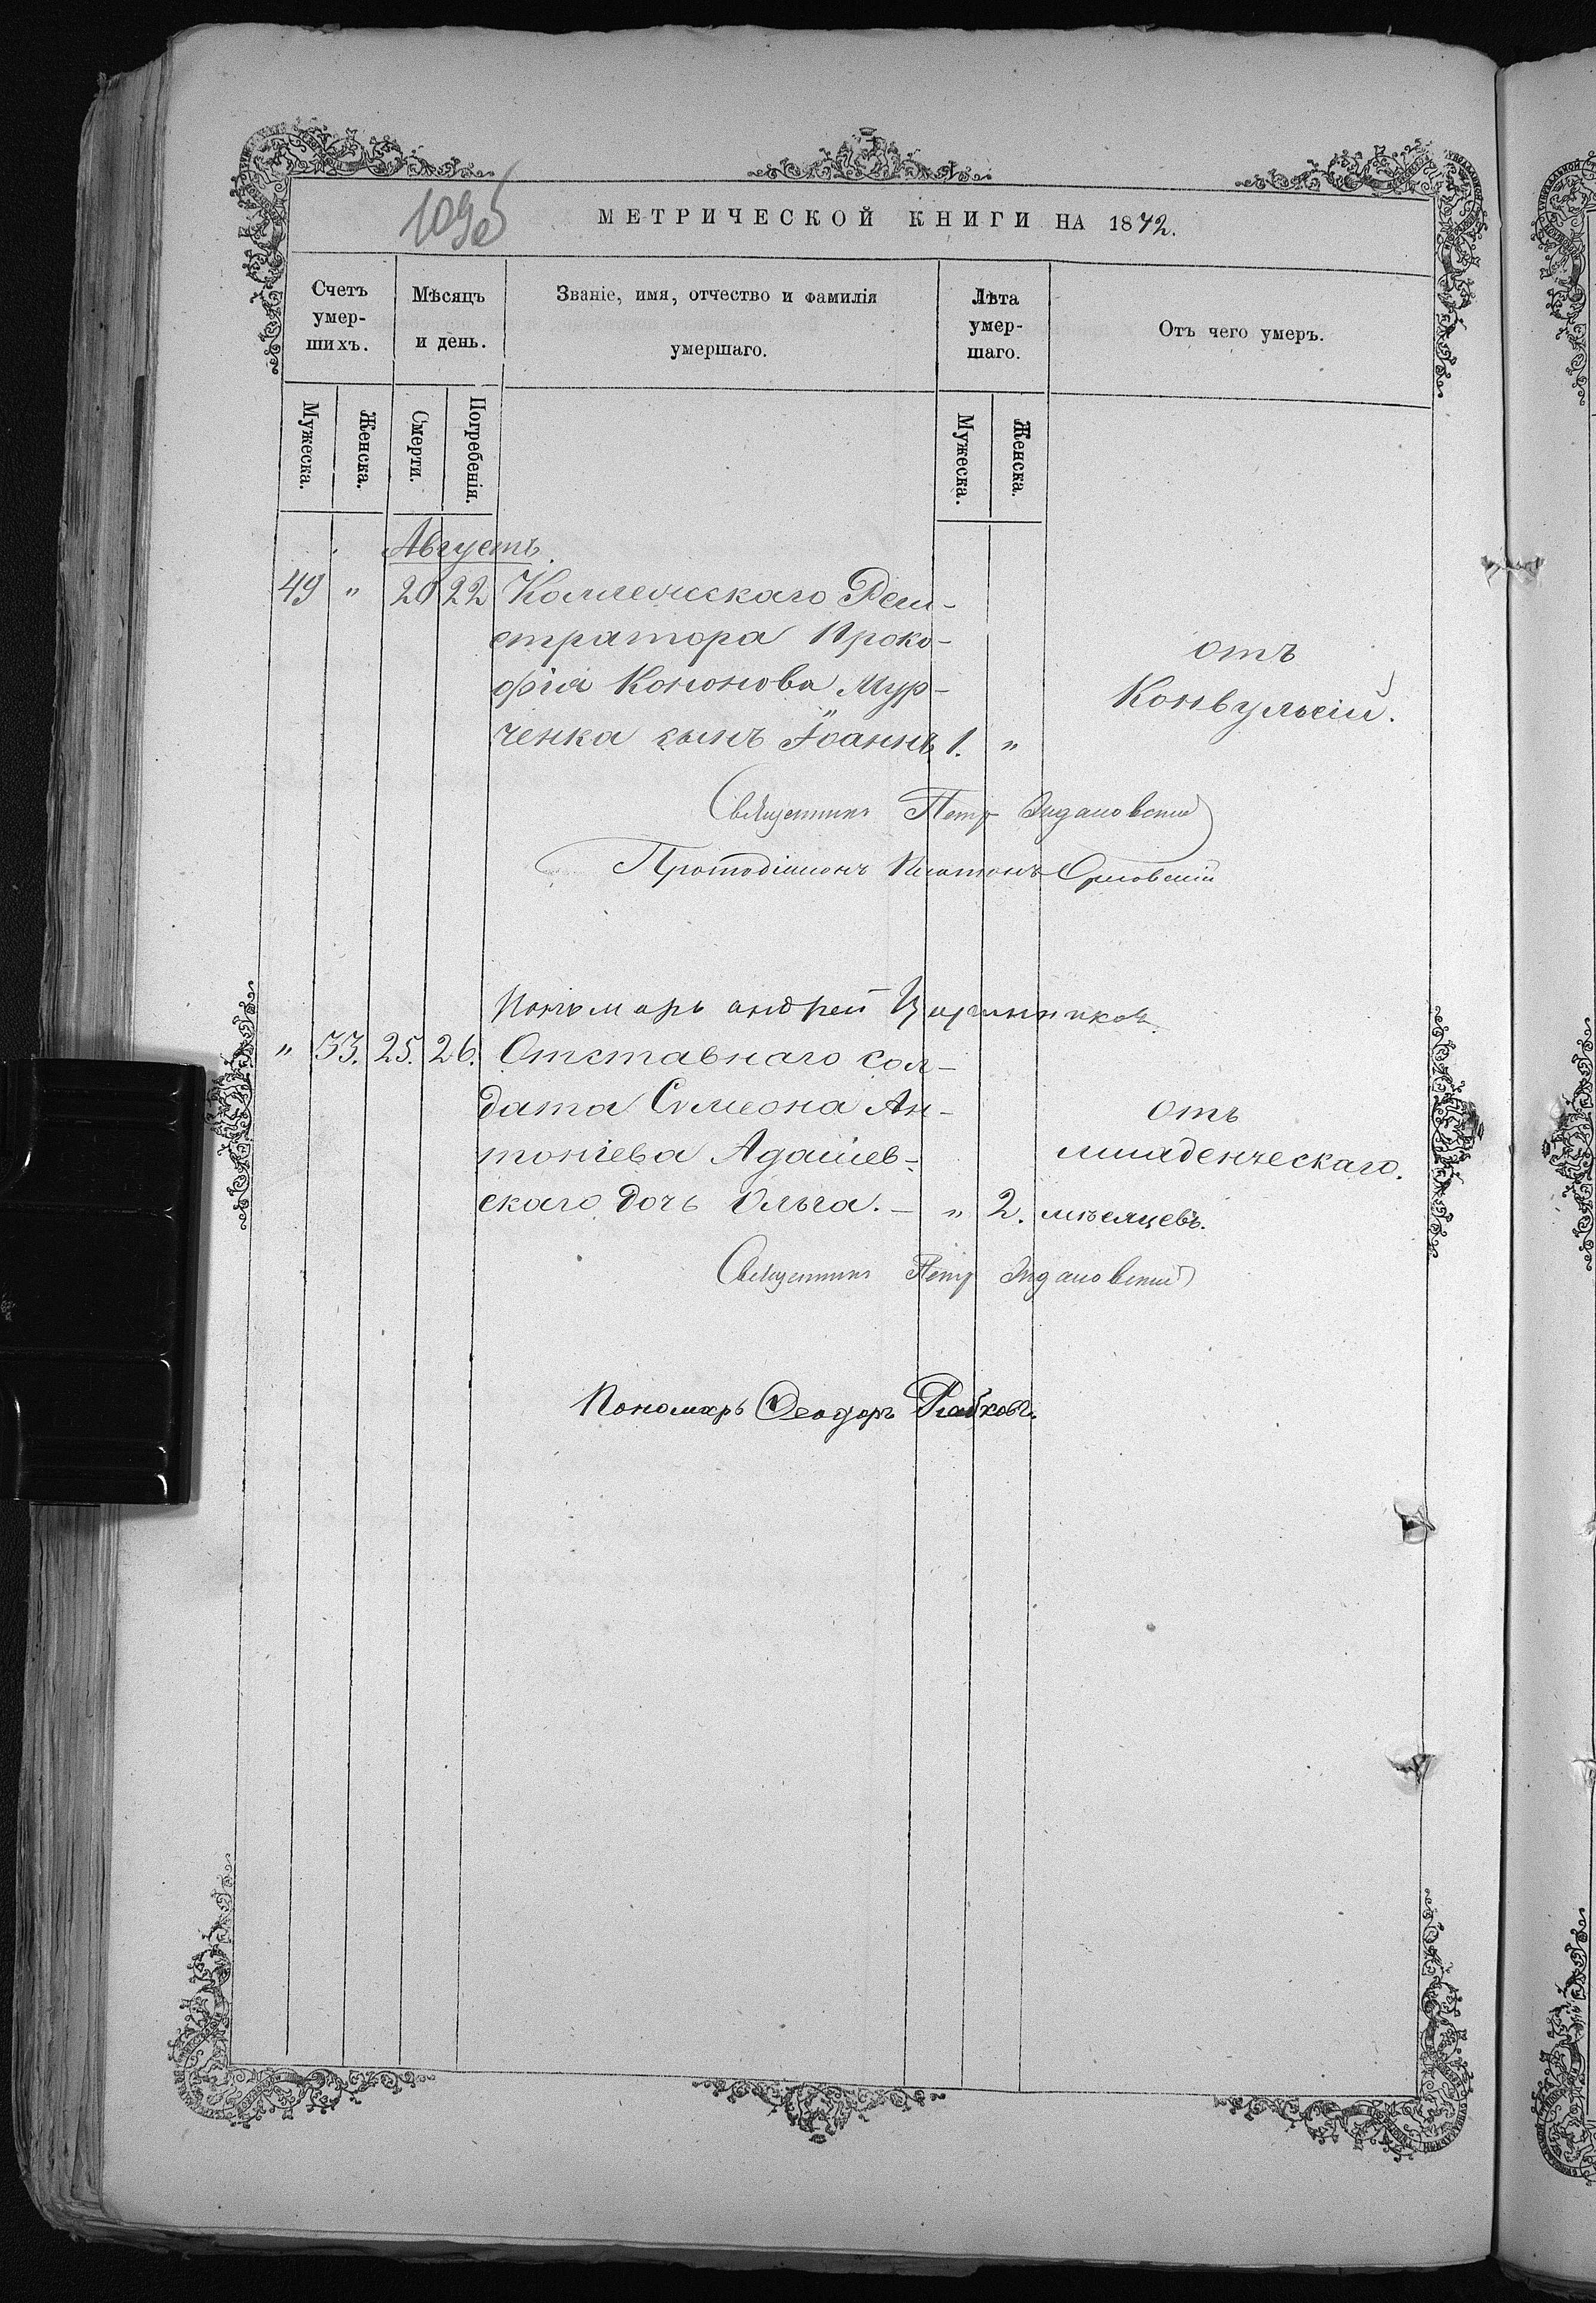 109об
МЕТРИЧЕСКОЙ КНИГИ НА 1872.
Счетъ умер-шихъ.
Мѣсяцъ и день.
Званіе, имя, отчество и фамилія умершаго.
Лѣта умер-шаго.
Отъ чего умеръ.
Мужеска.
Женска.
Смерти.
Погребенія.
Мужеска.
Женска.
Августъ.
49 " 20 22 Коллежскаго Реги-
стратора Проко-
фія Кононова Мур-
ченка сынъ Іоаннъ 1. "
отъ
Конвульсій.
Священникъ Петръ
Протодіаконъ Платонъ Орловскій
Пономарь андрей
" 33. 25. 26. Отставнаго сол-
дата Симеона Ан-
тоніева Адашев-
скаго дочь Ольга. — " 2. мѣсяцевъ.
отъ
младенческаго.
Священникъ Петръ
Пономарь Ѳеодоръ